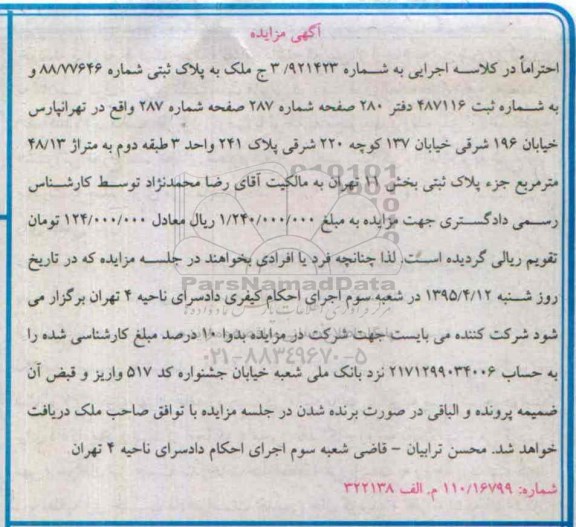 آگهی مزایده
احتراماً در کلاسه اجرایی به شماره ۹۲۱۴۲۳/ ۳ ج ملک به پلاک ثبتی شماره ۸۸/۷۷۶۴۶ و
به شماره ثبت ۴۸۷۱۱۶ دفتر ۲۸۰ صفحه شماره ۲۸۷ صفحه شماره ۲۸۷ واقع در تهرانپارس
خیابان ۱۹۶ شرقی خیابان ۱۳۷ کوچه ۲۲۰ شرقی پلاک ۲۴۱ واحد ۳ طبقه دوم به متراژ ۴۸/۱۳
مترمربع جزء پلاک ثبتی بخش ۱۱ تهران به مالکیت آقای رضا محمدنژاد توسط کارشناس
رسمی دادگستری جهت مزایده به مبلغ ۱/۲۴۰/۰۰۰/۰۰۰ ریال معادل ۱۲۴/۰۰۰/۰۰۰ تومان
تقویم ریالی گردیده است. لذا چنانچه فرد یا افرادی بخواهند در جلسه مزایده که در تاریخ
ParsNamadData
روز شنبه ۱۳۹۵/۴/۱۲ در شعبه سوم اجرای احکام کیفری دادسرای ناحیه ۴ تهران برگزار می
شود شرکت کننده می بایست جهت شرکت در مزایده بدوا ۱۰ درصد مبلغ کارشناسی شده را
۰۲۱-۸۸۳۴۹۶۷۰-۵
به حساب ۲۱۷۱۲۹۹۰۳۴۰۰۶ نزد بانک ملی شعبه خیابان جشنواره کد ۵۱۷ واریز و قبض آن
ضمیمه پرونده و الباقی در صورت برنده شدن در جلسه مزایده با توافق صاحب ملک دریافت
خواهد شد. محسن ترابیان - قاضی شعبه سوم اجرای احکام دادسرای ناحیه ۴ تهران
شماره: ۱۱۰/۱۶۷۹۹ م. الف ۳۲۲۱۳۸